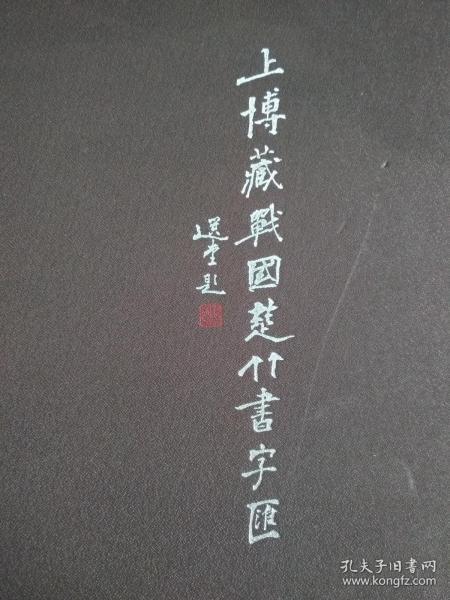 上博藏戰國楚竹書字匯
選堂題
孔夫子旧书网
www.kongfz.com